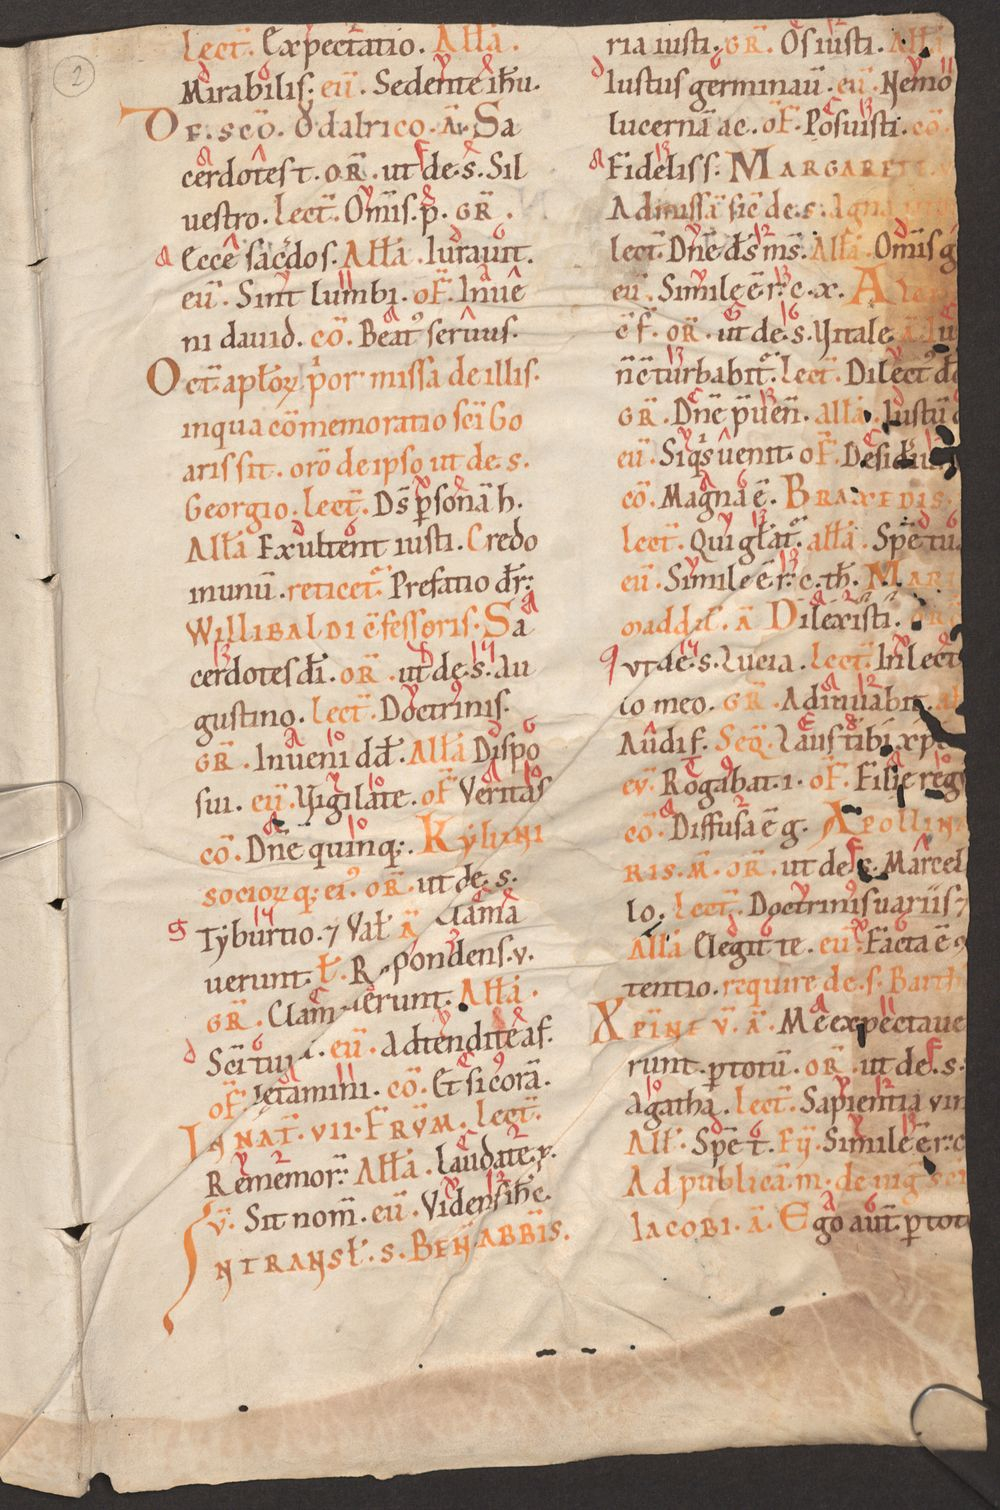 2
lect̄. Expectatio. Allā.
Mirabilis. eū. Sedente ih̄u.
DE. SCŌ. Odalrico. Ā. Sa
cerdotes t. OR̄. ut de. s. Sil
uestro. lect̄. Om̄is. p. GR̄.
Ecce sac̄dos. Allā. Iurauit.
eū. Sint lumbi. of̄. Inue
ni dauid. cō. Beat᷒ seruus.
Oct̄. apl̄oꝝ p̍or missa de illis.
inqua cōmemoratio sc̄i Go
aris sit. orō de ipso ut de. s.
Georgio. lect̄. Ds̄ p̱sonā h.
Allā Exultent iusti. Credo
inunū. reticet̄. Prefatio dr̄:
WILLIBALDI c̄fessoris. Sa
cerdotes dī. OR̄. ut de. s. Au
gustino. lect̄. Doctrinis.
GR̄. Inueni dd̄. Allā Dispo
sui. eū. Vigilate. of̄ Veritas
cō. Dn̄e quinq;. Kyliani
sociorq; ei᷒. OR̄. ut de. s.
Tyburtio. ⁊ Val̄ Ā Clama
uerunt. ł. R pondens. v.
GR̄. Clam uerunt. Allā.
Sc̄i tui. eū. Adtendite as.
oF̄. letamini. cō. Et si corā.
IGNAT̄. VII. FRVM. lect̄.
Rememor̄. Allā. laudate. p.
v̄. Sit nom̄. eū. Videns ih̄c.
INTRANSL̄. S. BEN̄ABBIS.
ria iusti. GR̄. Os iusti. Allā
Iustus germinau̅. eū. Nemo
lucernā ac. oF̄. Posuisti. cō.
Fidelis s. MARGARETE. V
Ad missā sic̄ de. s. Agna
lect̄. Dn̄e ds̄ ms̄. Allā. Om̄is g
eū. Simile ē r̄: c. x. A
c̄f. OR̄. ut de. s. Vitale. Ā. Iu
n̄c̄ turbabit̄. lect̄. Dilect᷒ d
GR̄. Dn̄e p̄uen̄. allā. Iustū
eū. Siq̍s uenit. oF̄. Desid̄iu
cō. Magna ē. BRAXEDIS.
lect̄. Qui gl̄at̄. allā. Spē tu
eū. Simile ē r̄: c. th̄. MARI
maddal̄. ā Dilexisti. OR̄
ut de. s. Lucia. lect̄. In lect
lo meo. GR̄. Adiuuabit. al
Audi f. Seq̄. laus tibi xp
ev̄. Rogabat. i. oF̄. Filie reg
cō. Diffusa ē g. APOLLINA
RIS. M̄. OR̄. ut de. s. Marcel
lo. lect̄. Doctrinis uariis ⁊
Allā Elegit te. eū. Facta ē 9
tentio. require de. s. Barth
XPINE V̄. Ā. Me expectaue
runt. p̱totū. OR̄. ut de. s.
Agatha. lect̄. Sapientia vin
All̄. Spē t. Eū. Simile ē r̄: c
Ad publicā. m. de uig̍ sc̄i
IACOBI. Ā. Ego aut̄. p̱ tot